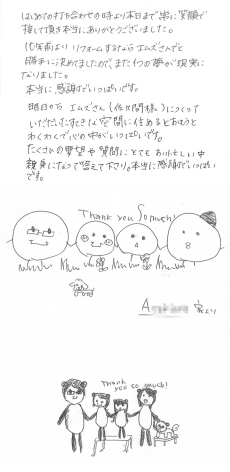 はじめての打ち合わせの時より本日まで常に笑顔で
接して頂き本当にありがとうございました。
10年前よりリフォームするならエムズさんでと
勝手に決めてましたので、また1つの夢が現実に
なりました。
本当に感謝でいっぱいです。
明日から エムズさん(佐久間様)につくって
いただいたすてきな空間に住めるとおもうと
わくわくで心の中がいっぱいです。
たくさんの要望や質問にとてもお忙しい中
親身になって答えて下さり。本当に感謝でいっぱい
です。
Thank you So much!
A
家より
Thank
you so much!